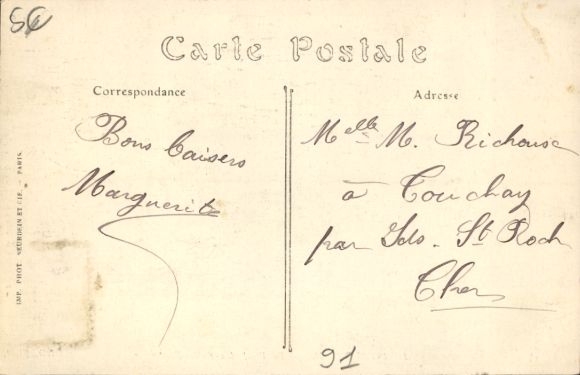 86
Carte Postale
Correspondance
Adresse
Bons baisers
Marguerite
Melle M. Richouse
à Touchay
par Ids. St Roch
Cher
IMP. PHOT. NEURDEIN ET CIE. - PARIS.
91